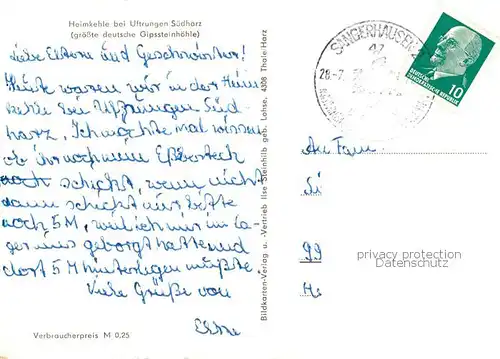 Heimkehle bei Uftrungen Südharz
(größte deutsche Gipssteinhöhle)
Liebe Eltern und Geschwister!
Heute waren wir in der Heim
kehle bei Uftrungen Süd
harz. Ich möchte mal wissen
ob ihr noch mein Eßbesteck
noch schickt, wenn nicht
dann schickt mir bitte
noch 5 M, weil ich mir im La-
ger eins geborgt hatte und
dort 5 M hinterlegen müßte.
Viele Grüße von
Verbraucherpreis M 0,25
Bildkarten-Verlag u. -Vertrieb Ilse Steinhilb geb. Lohse, 4308 Thale/Harz
SANGERHAUSEN
47
DEUTSCHE
DEMOKRATISCHE REPUBLIK
10
An Fam.
Si
99
Ha
privacy protection
Datenschutz